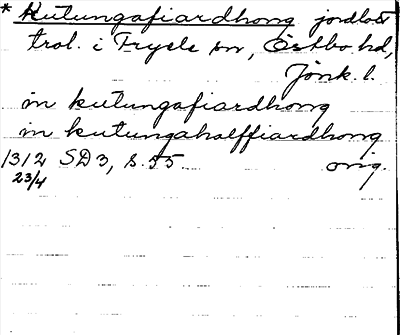 * Kutungafiardhong jordlott
trol. i Tryele sn, Östbo hd,
Jönk. l.
in kutungafiardhong
in kutungahalffiardhong
1312 SD3, s. 55. orig.
23/4